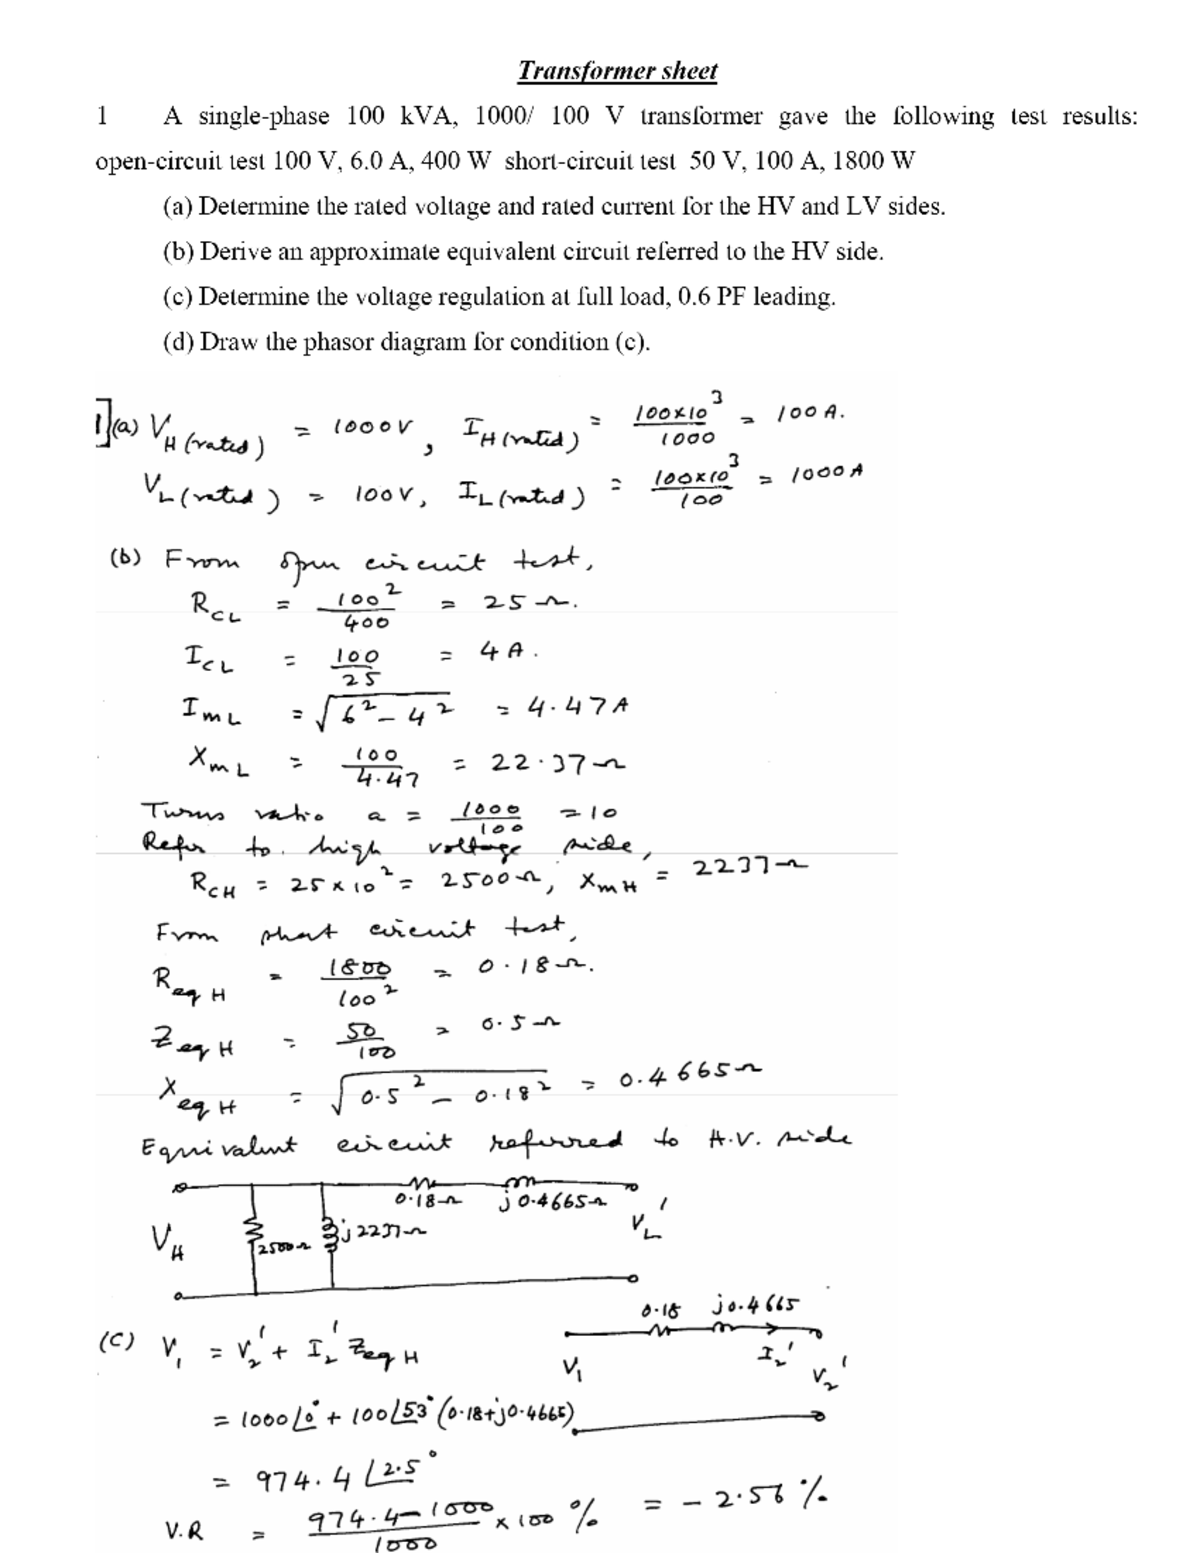 Transformer sheet
1 A single-phase 100 kVA, 1000/ 100 V transformer gave the following test results:
open-circuit test 100 V, 6.0 A, 400 W short-circuit test 50 V, 100 A, 1800 W
(a) Determine the rated voltage and rated current for the HV and LV sides.
(b) Derive an approximate equivalent circuit referred to the HV side.
(c) Determine the voltage regulation at full load, 0.6 PF leading.
(d) Draw the phasor diagram for condition (c).
1](a) V_H (rated) = 1000 V, I_H (rated) = 100×10^3 / 1000 = 100 A.
V_L (rated) = 100 V, I_L (rated) = 100×10^3 / 100 = 1000 A
(b) From open circuit test,
R_CL = 100^2 / 400 = 25 Ω.
I_CL = 100 / 25 = 4 A.
I_mL = √(6^2 - 4^2) = 4.47 A
X_mL = 100 / 4.47 = 22.37 Ω
Turns ratio a = 1000 / 100 = 10
Refer to high voltage side,
R_CH = 25 × 10^2 = 2500 Ω, X_mH = 2237 Ω
From short circuit test,
R_eqH = 1800 / 100^2 = 0.18 Ω.
Z_eqH = 50 / 100 = 0.5 Ω
X_eqH = √(0.5^2 - 0.18^2) = 0.4665 Ω
Equivalent circuit referred to H.V. side
0.18 Ω j0.4665 Ω
V_H 2500 Ω j2237 Ω V_L'
(c) V_1 = V_2' + I_2' Z_eqH
0.18 j0.4665
V_1 I_2' V_2'
= 1000∠0° + 100∠53° (0.18+j0.4665)
= 974.4 ∠2.5°
V.R = 974.4-1000 / 1000 × 100 % = - 2.56 %